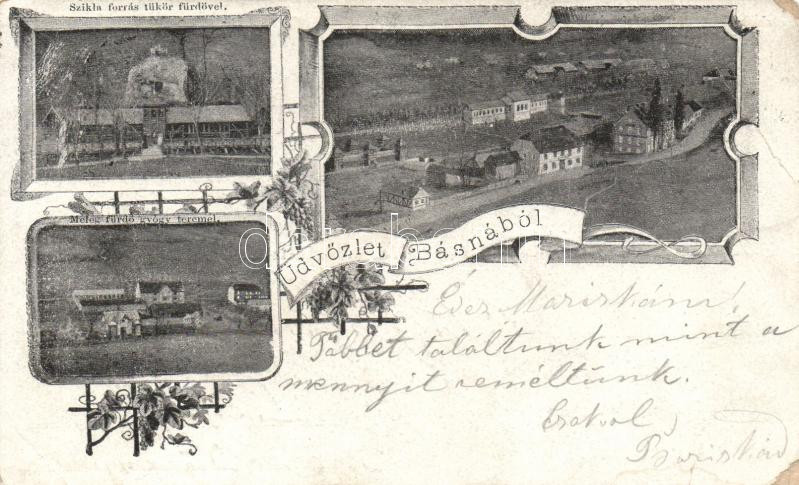 Szikla forrás tükör fürdövel.
Meleg fürdö gyógy teremel.
Üdvözlet Básnából
Édes Mariskám!
Többet találtunk mint a
mennyit reméltünk.
Csókol